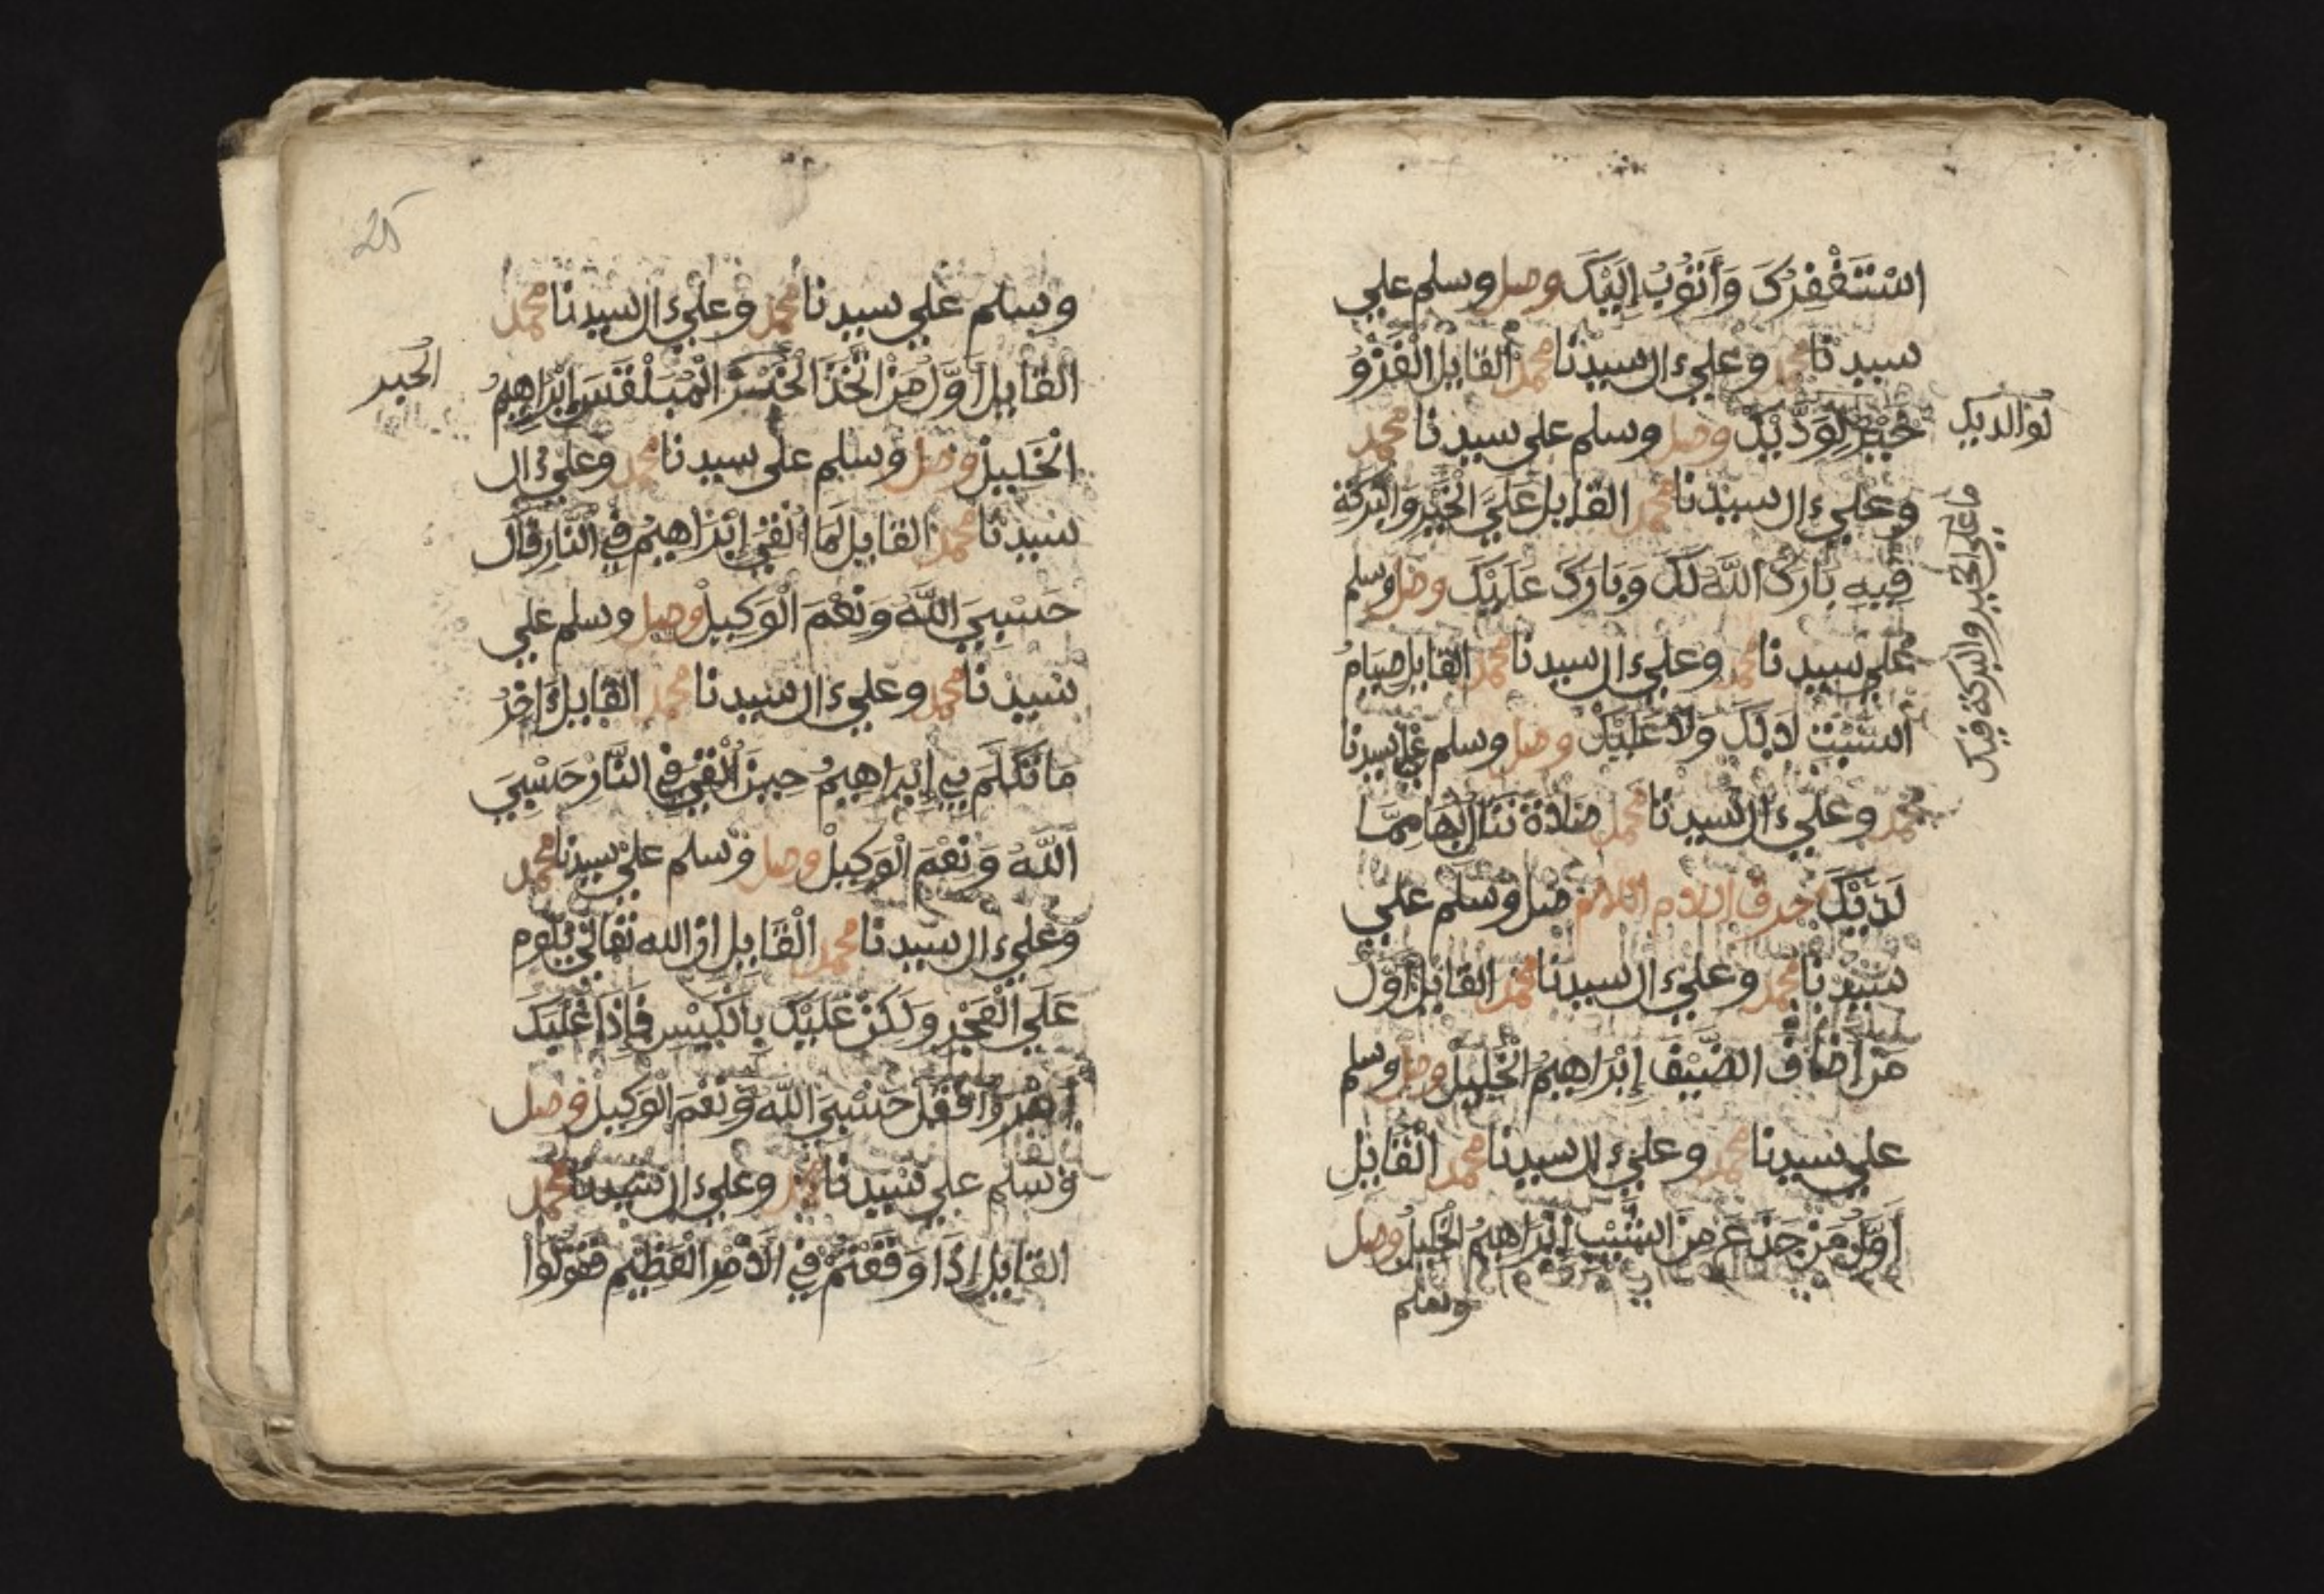 استَغْفِرُكَ وَأَتُوبُ إِلَيْكَ وصل وسلم علي
سيدنا محمد وعلي ءال سيدنا محمد القايل الْغَزْوُ
خَيْرٌ لِوَدْيِكَ وصل وسلم على سيدنا محمد
لوالديك
وعلي ءال سيدنا محمد القايل عَلَيَ الخَيْرِ وَالبَرَكَةِ
ما علي الخير والبركة فيك
فِيهِ بَارَكَ اللَّهُ لَكَ وَبَارَكَ عَلَيْكَ وصل وسلم
علي سيدنا محمد وعلي ءال سيدنا محمد القايل صِيَامُ
السَّبْتِ لَا لَكَ وَلَا عَلَيْكَ وصل وسلم علي سيدنا
محمد وعلي ءال سيدنا محمد صَلَاةً نَنَالُ بِهَا مِمَّا
لَدَيْكَ حرف اللام اللهم صل وسلم علي
سيدنا محمد وعلي ءال سيدنا محمد القايل أَوَّلُ
مَنْ أَضَافَ الضَّيْفَ إِبْرَاهِيمُ الْخَلِيلُ وصل وسلم
علي سيدنا محمد وعلي ءال سيدنا محمد الْقَايِلِ
أَوَّلُ مَنْ جَذَعَ مِنَ الشَّيْبِ إِبْرَاهِيمُ الْخَلِيلُ وصل
وسلم
25
وسلم علي سيدنا محمد وعلي ءال سيدنا محمد
القَايِل أَوَّلُ مَنْ اتَّخَذَ الْخُبْزَ الْمُبَلْقَسَ إِبْرَاهِيمُ
الخبز
الْخَلِيلُ وصل وسلم على سيدنا محمد وعلي ءال
سيدنا محمد القايل لَمَا أُلْقِيَ إِبْرَاهِيمُ فِي النَّارِ قَالَ
حَسْبِيَ اللَّهُ وَنِعْمَ الْوَكِيلْ وصل وسلم علي
سيدنا محمد وعلي ءال سيدنا محمد القايل ءَاخِرُ
مَا تَكَلَّمَ بِهِ إِبْرَاهِيمُ حِينَ أُلْقِيَ فِي النَّارْ حَسْبِيَ
اللَّهُ وَنِعْمَ الْوَكِيلْ وصل وسلم علي سيدنا محمد
وعلي ءال سيدنا محمد الْقَايِل ان الله تَعَالَى يَلُومُ
عَلَى الْعَجْزِ وَلَكِنْ عَلَيْكَ بِالْكَيْسِ فَإِذَا غَلَبَكَ
أَمْرٌ فَقُلْ حَسْبِيَ اللَّهُ وَنِعْمَ الْوَكِيلْ وصل
وسلم علي سيدنا محمد وعلي ءال سيدنا محمد
القايل إِذَا وَقَعْتُمْ فِي الْأَمْرِ الْعَظِيمِ فَقُولُوا